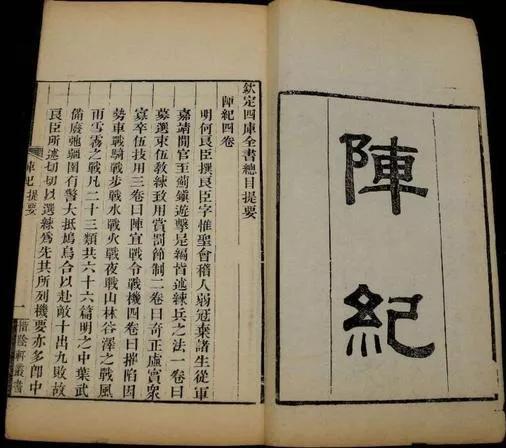 陣紀
欽定四庫全書總目提要
陣紀四卷
明何良臣撰良臣字惟聖會稽人弱冠棄諸生從軍
嘉靖閒官至薊鎮遊擊是編皆述練兵之法一卷曰
募選束伍教練致用賞罰節制二卷曰奇正虛實衆
寡卒伍技用三卷曰陣宜戰令戰機四卷曰摧陷因
勢車戰騎戰步戰水戰火戰夜戰山林谷澤之戰風
雨雪霧之戰凡二十三類共六十六篇明之中葉武
備廢弛疆圉有警大抵鳩烏合以赴敵十出九敗故
良臣所述切切以選練爲先其所列機要亦多卽中
陣紀提要
一
惜陰軒叢書